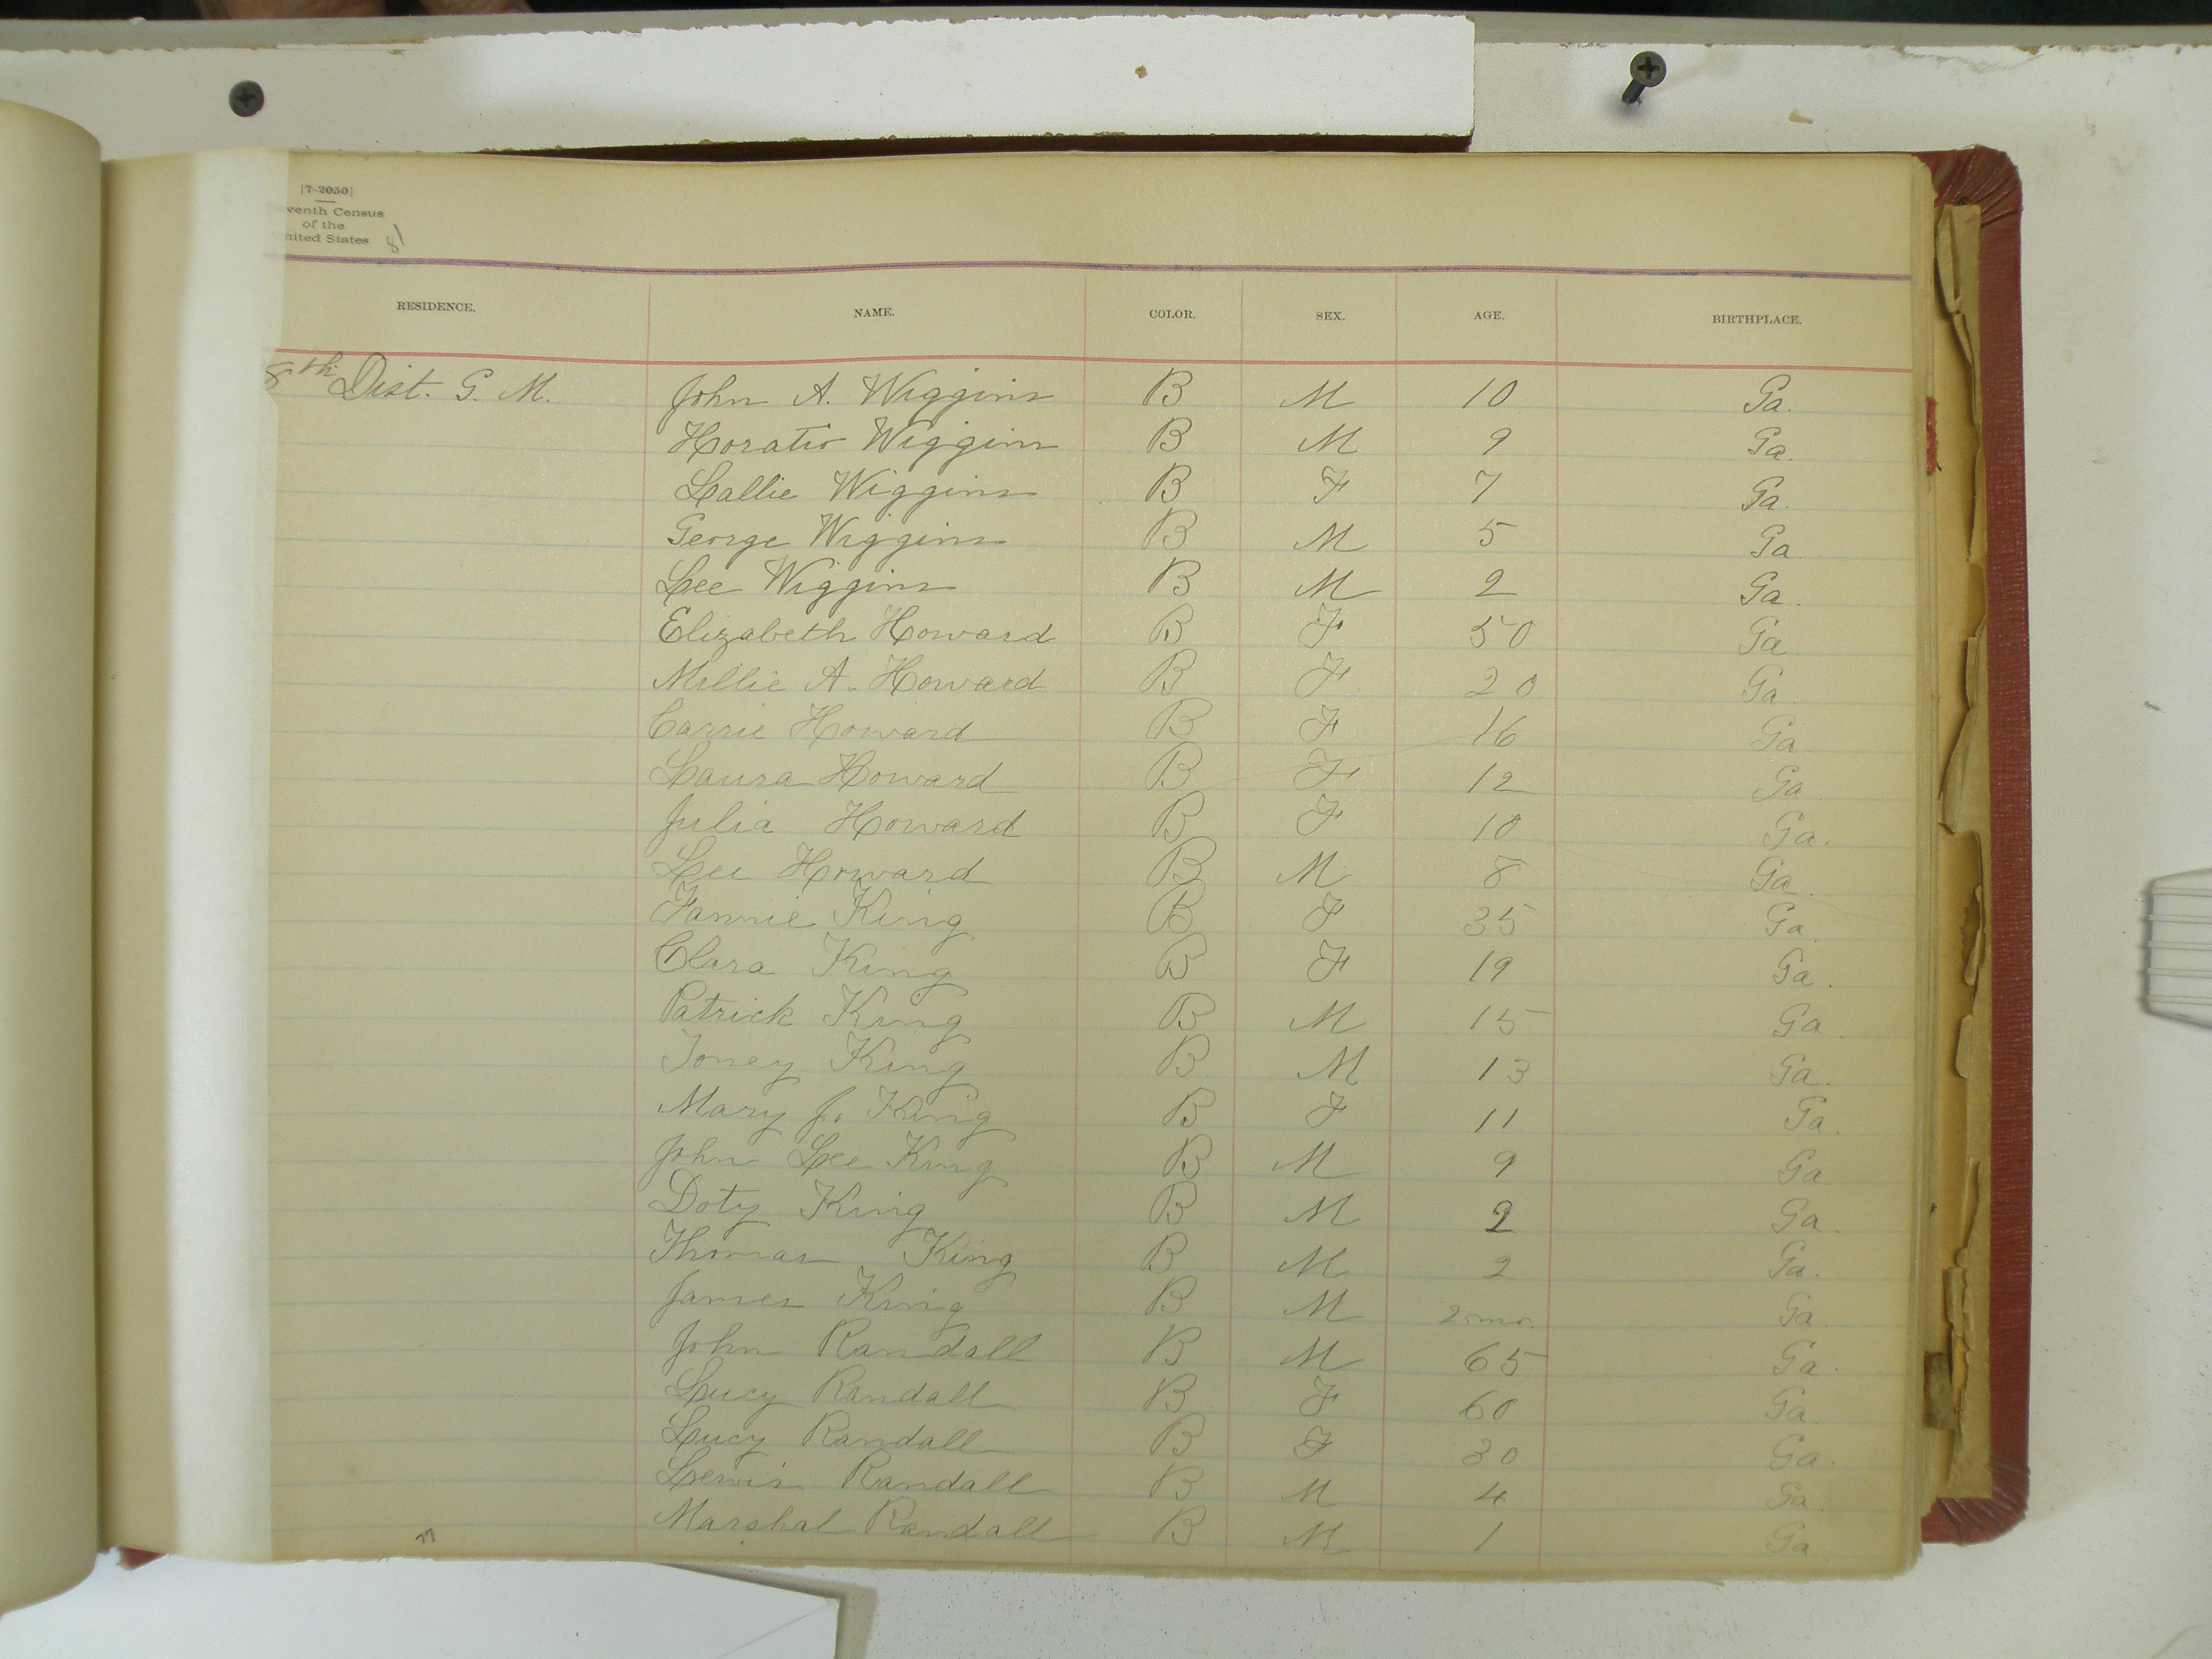 [7-2050]
venth Census
of the
nited States 81
RESIDENCE. NAME. COLOR. SEX. AGE. BIRTHPLACE.
8th Dist. G. M. John A. Wiggins B M 10 Ga.
Horatio Wiggins B M 9 Ga.
Lallie Wiggins B F 7 Ga.
George Wiggins B M 5 Ga.
Lee Wiggins B M 2 Ga.
Elizabeth Howard B F 50 Ga.
Millie A. Howard B F 20 Ga.
Carrie Howard B F 16 Ga.
Laura Howard B F 12 Ga
Julia Howard B F 10 Ga.
Lee Howard B M 8 Ga.
Fannie King B F 35 Ga.
Clara King B F 19 Ga.
Patrick King B M 15 Ga.
Toney King B M 13 Ga.
Mary J. King B F 11 Ga.
John Lee King B M 9 Ga.
Doty King B M 2 Ga.
Thomas King B M 2 Ga.
James King B M 2 mo. Ga
John Randall B M 65 Ga.
Lucy Randall B F 60 Ga.
Lucy Randall B F 30 Ga.
Lewis Randall B M 4 Ga.
Marshal Randall B M 1 Ga.
77